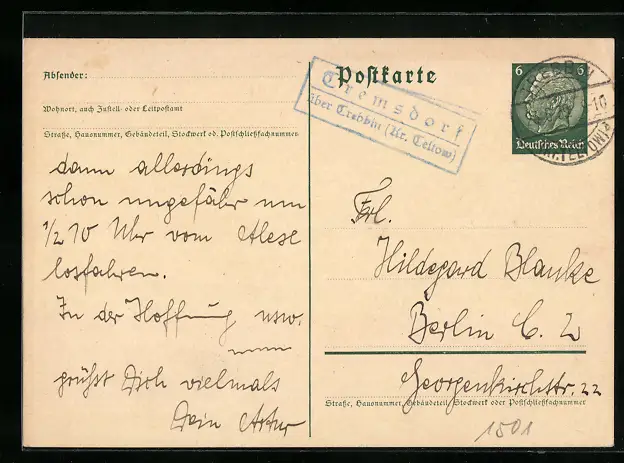 Absender:
Wohnort, auch Zustell- oder Leitpostamt
Straße, Hausnummer, Gebäudeteil, Stockwerk od. Postschließfachnummer
dann allerdings
schon ungefähr um
1/2 10 Uhr vom Alese
losfahren.
In der Hoffnung usw.
grüßt Dich vielmals
Dein Artur
Postkarte
Cremsdorf
über Trebbin (Kr. Teltow)
6 6
Deutsches Reich
Frl.
Hildegard Blanke
Berlin C. 2
Georgenkirchstr. 22
Straße, Hausnummer, Gebäudeteil, Stockwerk oder Postschließfachnummer
1501